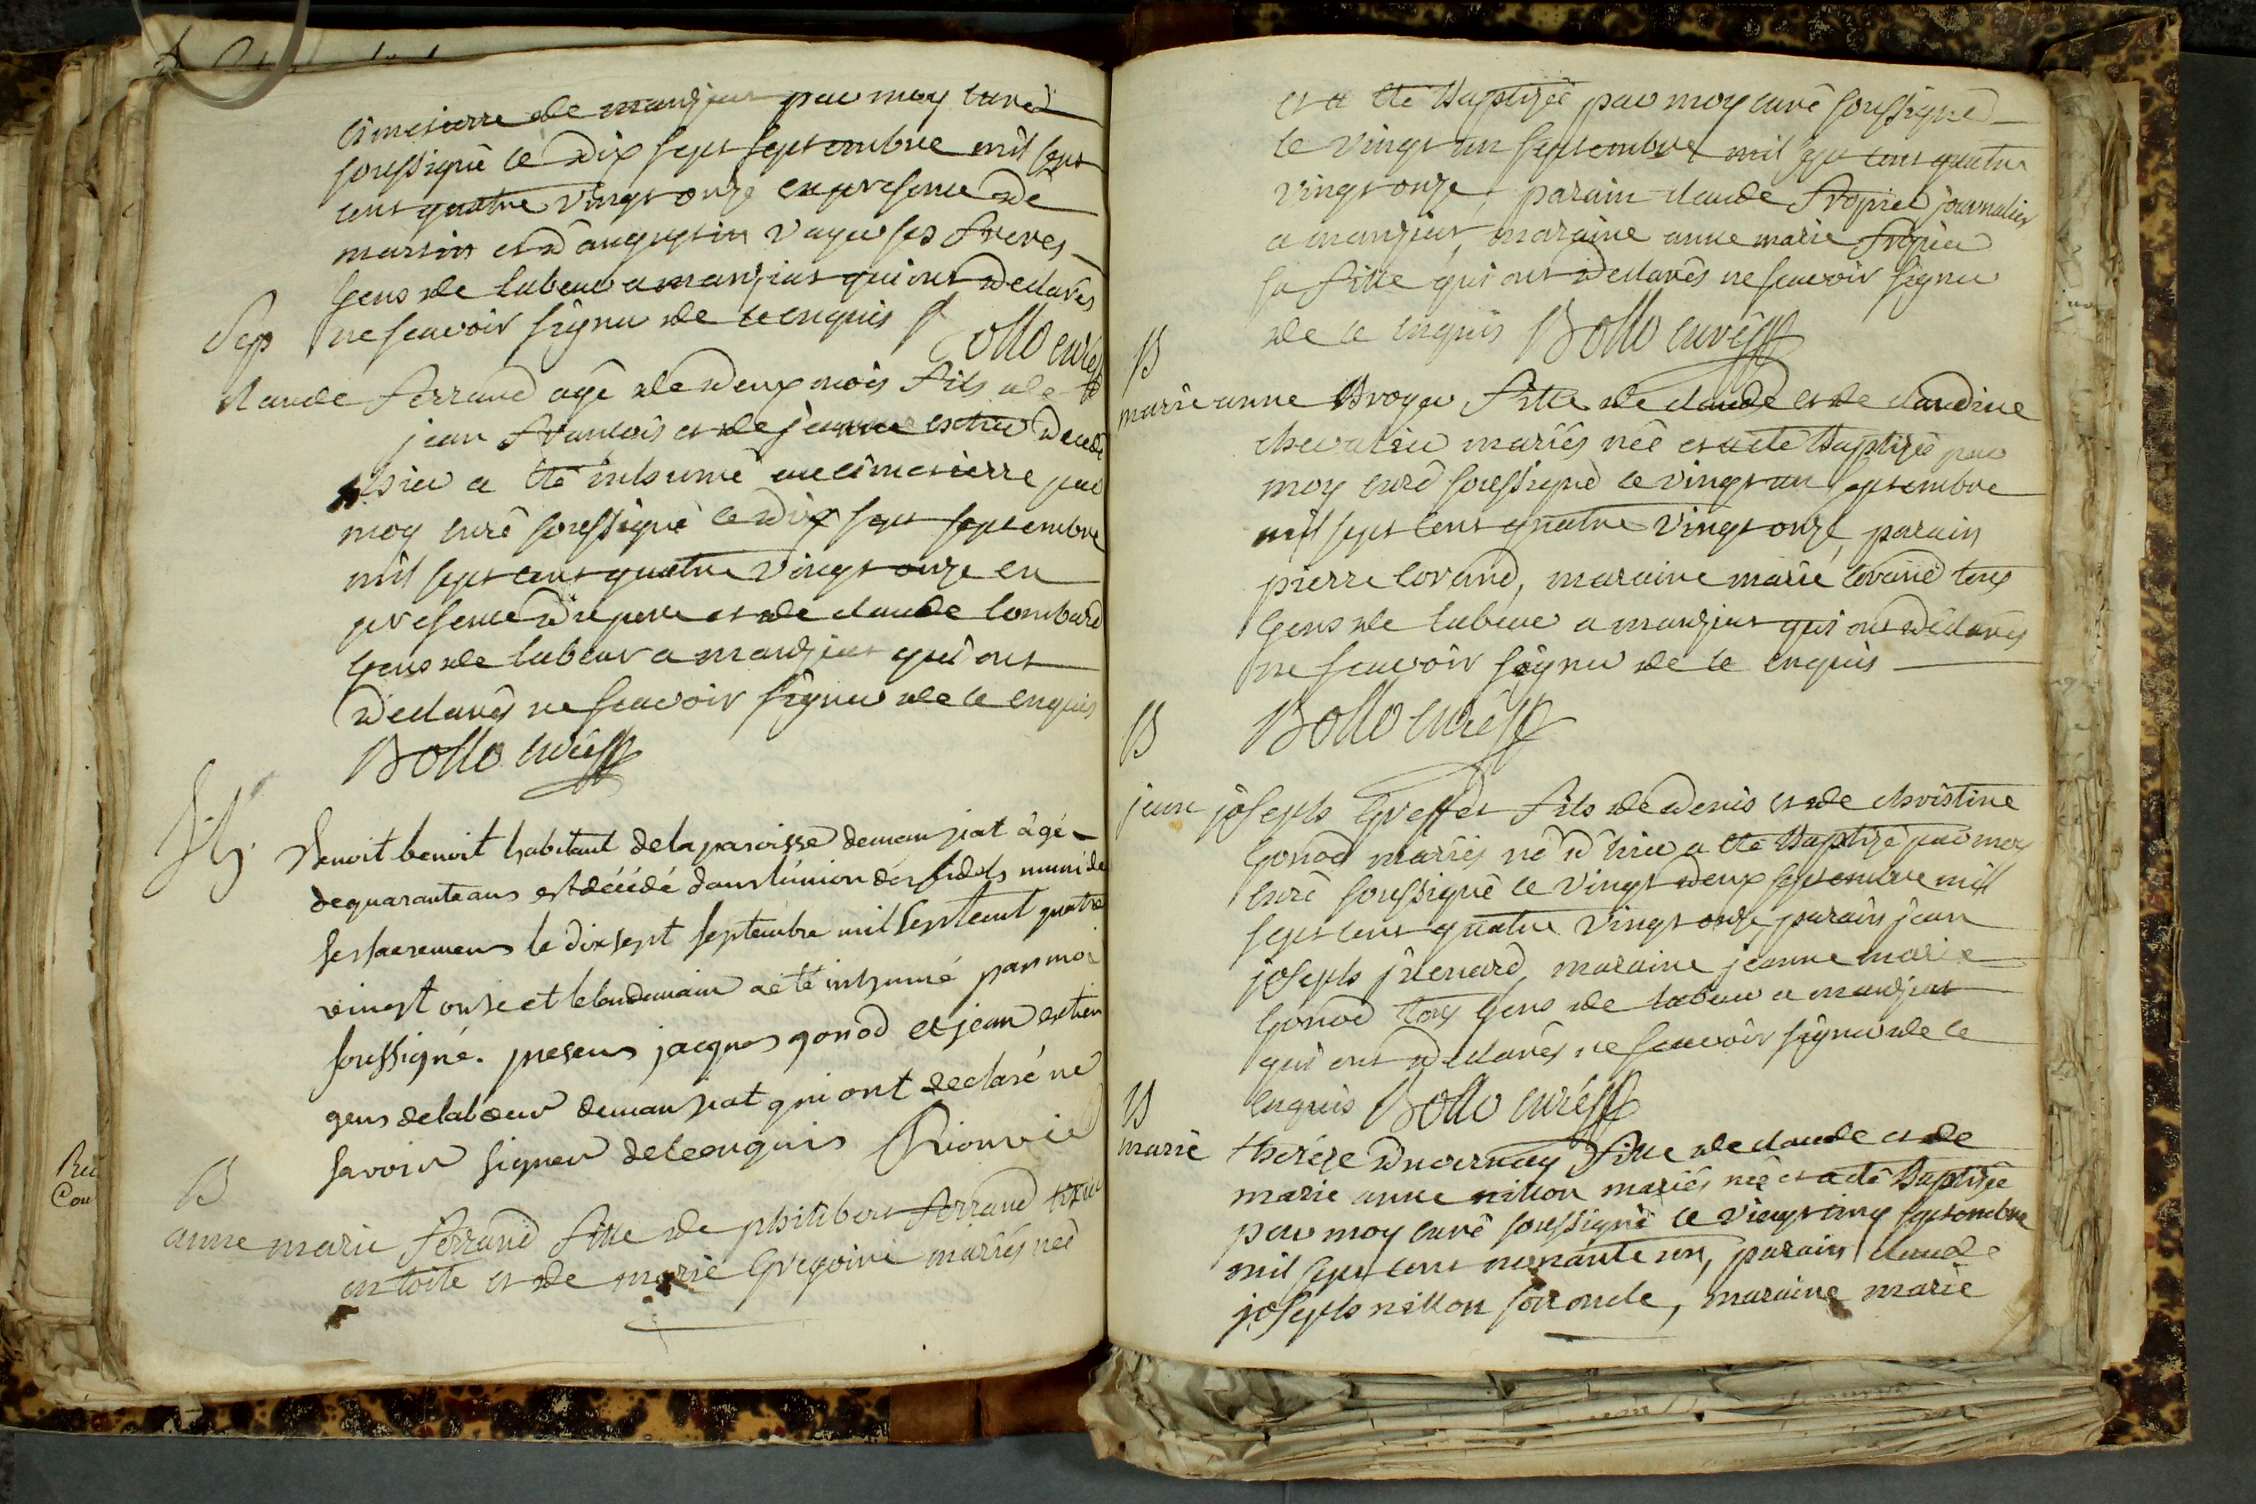 cimetierre de manziat par moy curé
soussigné le dix sept septembre mil sept
cent quatre vingt onze en presence de
martin et d'augustin vayer ses freres
gens de labeur a manziat qui ont declarés
Sep ne scavoir signer de ce enquis Bollo curé
claude ferrand agé de deux mois fils de
jean francois et de jeanne extier decedé
hier a été inhumé au cimetierre par
moy curé soussigné le dix sept septembre
mil sept cent quatre vingt onze en
presence du pere et de claude lombard
gens de labeur a manziat qui ont
declarés ne scavoir signer de ce enquis
Bollo curé
benoit benoit habitant de la paroisse de manziat âgé
de quarante ans est décédé dans l'union des fidels muni de
ses sacremens le dix sept septembre mil sept cent quatre
vingt onze et le landemain a été inhumé par moi
soussigné. presens jacques gonod et jean extier
gens de labœur de manziat qui ont declaré ne
savoir signer de ce enquis
B
anne marie ferrand fille de philibert ferrand tixier
en toile et de marie Gregoire mariés née
et a été Baptizée par moy curé soussigné
le vingt un septembre mil sept cent quatre
vingt onze, parain claude fropier journalier
a manziat, maraine anne marie fropier
sa fille qui ont declarés ne scavoir signer
de ce enquis Bollo curé
B
marie anne Broyer fille de claude et de claudine
chevalier mariés née et a été Baptizée par
moy curé soussigné le vingt un septembre
mil sept cent quatre vingt onze, parain
pierre lorand, maraine marie lorand tous
gens de labeur a manziat qui ont déclarés
ne scavoir signer de ce enquis
B Bollo curé
jean joseph Greffet fils de denis et de christine
Gonod mariés né d'hier a été Baptizé par moy
curé soussigné le vingt deux septembre mil
sept cent quatre vingt onze parain jean
joseph juenard, maraine jeanne marie
Gonod tous gens de labeur a manziat
qui ont declarés ne scavoir signer de ce
enquis Bollo curé
B
marie therése duvernay fille de claude et de
marie anne nillon mariés née et a été Baptizée
par moy curé soussigné le vingt cinq septembre
mil sept cent nonante un, parain claude
joseph nillon son oncle, maraine marie